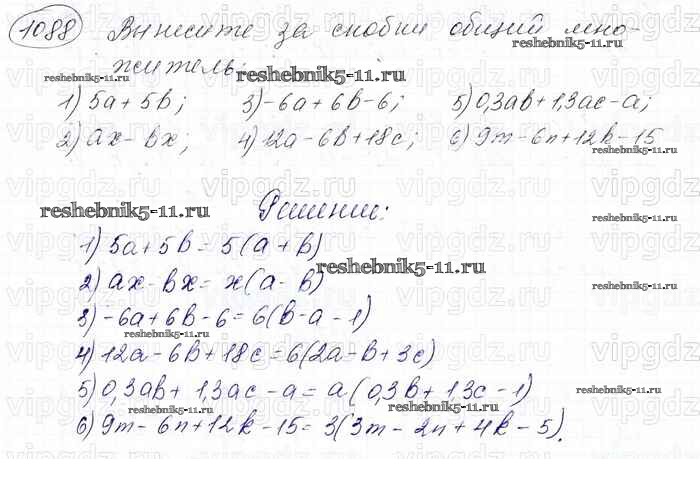 1088 Вынесите за скобки общий мно-
житель:
1) 5a + 5b; 3) -6a + 6b - 6; 5) 0,3ab + 1,3ac - a;
2) ax - bx; 4) 12a - 6b + 18c; 6) 9m - 6n + 12k - 15
Решение:
1) 5a + 5b = 5(a + b)
2) ax - bx = x(a - b)
3) -6a + 6b - 6 = 6(b - a - 1)
4) 12a - 6b + 18c = 6(2a - b + 3c)
5) 0,3ab + 1,3ac - a = a(0,3b + 1,3c - 1)
6) 9m - 6n + 12k - 15 = 3(3m - 2n + 4k - 5).
reshebnik5-11.ru
vipgdz.ru